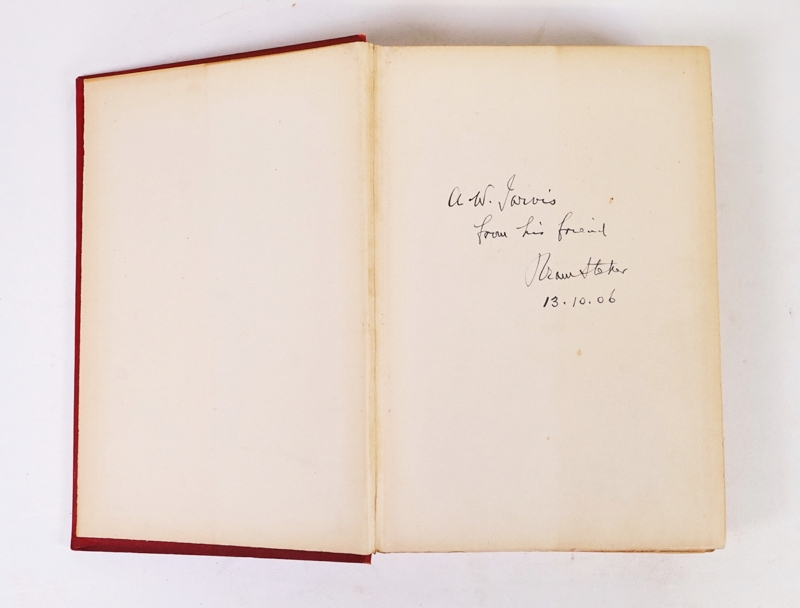 A. W. Jarvis
from his friend
Bram Stoker
13.10.06